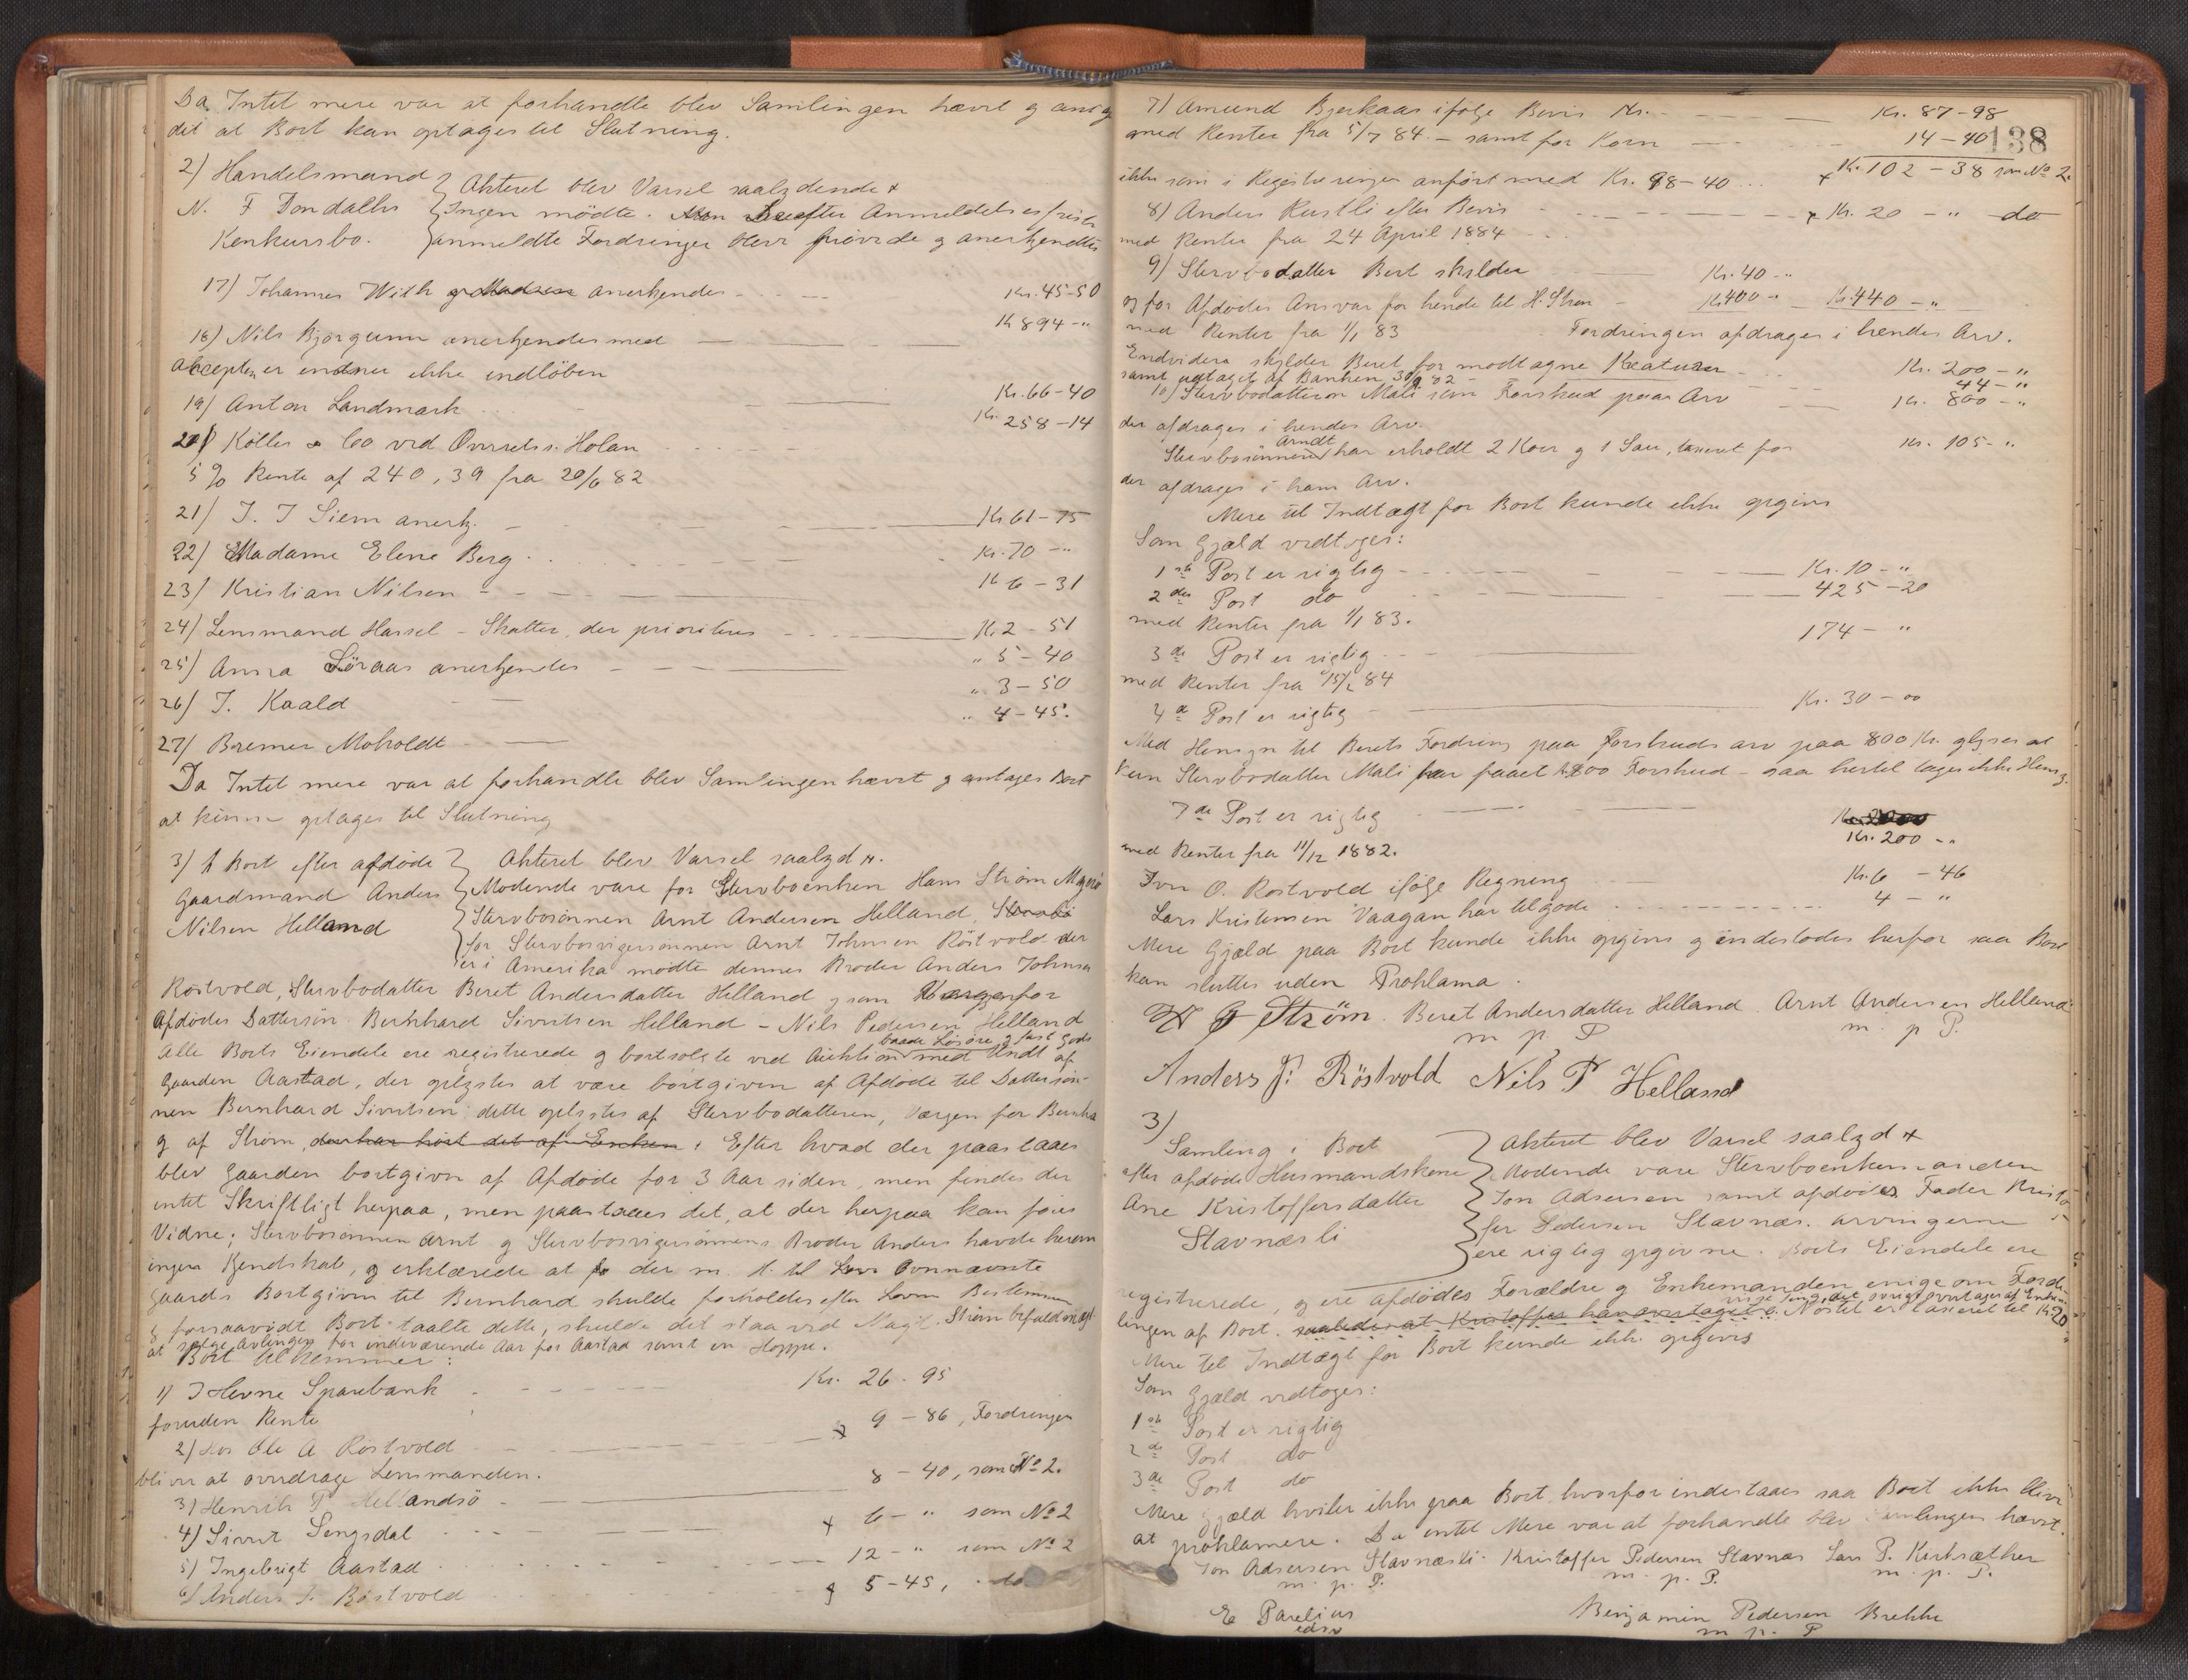 Da Intet mere var at forhandle blev Samlingen hævet og antog
det at Boet kan optages til Slutning.
2) Handelsmand
N. F Dondalhs
Konkursbo.
Akteret blev Varsel saalydende
Ingen mödte. Derefter Anmeldelsesfrist
anmeldte Fordringer blev prövede og anerkjendtes
17) Johannes With anerkjendes Kr. 45-50
K 894 - "
18) Nils Bjørgum anerkjendes med
Accepten er endnu ikke indlöben
19) Anton Landmark Kr. 66-40
Kr. 258-14
20) Köller & Co ved Overrets s. Holan
5 % Rente af 240,39 fra 20/6 82
21) J. J Siem anerkj. Kr 61-75
22) Madame Elene Berg Kr. 70 - "
23) Kristian Nilsen K 6 - 31
24) Lensmand Hassel - Skatter, der prioriteres Kr. 2 - 51
25) Anna Söraas anerkjendes " 5 - 40
26) J. Kaald " 3 - 50
" 4 - 45.
27) Bremer Moholdt
Da Intet mere var at forhandle blev Samlingen hævet og antages Boet
at kunne optages til Slutning
3) I Boet efter afdöde
Gaardmand Anders
Nilsen Helland
Akteret blev Varsel saalyd
Mödende vare for Stervboenken Hans Ström
Stervbosönnen Arnt Andersen Helland,
for Stervbosvigersönnen Arnt Johnsen Röstvold der
er i Amerika mödte dennes Broder Anders Johnsen
Röstvold, Stervbodatter Beret Andersdatter Helland og som Værge for
Afdödes Dattersön Bernhard Sivertsen Helland - Nils Pedersen Helland
baade Lösöre og fast Gods
Alle Boets Eiendele ere registrerede og bortsolgte ved Auktion med Undt af
Gaarden Aastad, der oplystes at være bortgiven af Afdöde til Dattersön-
nen Bernhard Sivertsen; dette oplystes af Stervbodatteren, Værgen for Bernha
og af Ström, der har hört det af Enken. Efter hvad der paastaaes
blev Gaarden bortgiven af Afdöde for 3 Aar siden, men findes der
intet Skriftligt herpaa, men paastaaes det, at der herpaa kan föres
Vidne; Stervbosönnen Arnt og Stervbosvigersönnens Broder Anders havde herom
ingen Kjendskab, og erklærede at der m. H. til Ovennævnte
Gaards Bortgiven til Bernhard skulde forholdes efter Lovens Bestemmelser
og forsaavidt Boet taalte dette, skulde det staa ved Magt. Ström befuldmægt
at sælge Avlingen for indeværende Aar for Aastad samt en Hoppe.
Boet tilkommer:
1) I Hevne Sparebank Kr. 26 - 95
foruden Rente
2) Hos Ole A Röstvold 9 - 86, Fordringen
bliver at overdrage Lensmanden.
3) Henrik P. Hellandsö 8 - 40, som No 2.
4) Sivert Lengsdal 6 - " som No 2
5) Ingebrigt Aastad 12 - " som No 2
6) Anders J. Röstvold 5 - 45, do
138
7) Amund Bjerkaas ifölge Bevis Kr. Kr. 87-98
med Renter fra 5/7 84 - samt for Korn 14 - 40
Kr. 102 - 38 som No 2.
ikke som i Registreringen anfört med Kr. 98-40
8) Anders Rustli efter Bevis Kr. 20 - " do
med Renter fra 24 April 1884
9) Stervbodatter Beret skylder Kr. 40 - "
og for Afdödes Ansvar for hende til H. Ström Kr 400 - " Kr. 440 - "
med Renter fra 1/1 83 Fordringen afdrages i hendes Arv.
Endvidere skylder Beret for modtagne Kreaturer Kr. 200 - "
samt udtaget af Banken 30/9 82 44 - "
10) Stervbodatteren Mali som Forskud paa Arv Kr. 800 - "
der afdrages i hendes Arv.
Stervbosönnen Arndt har erholdt 2 Koer og 1 Sau, taxeret for Kr. 105 - "
der afdrages i hans Arv.
Mere til Indtægt for Boet kunde ikke opgives
Som Gjæld vedtoges:
1ste Post er rigtig Kr. 10 - "
2den Post do 425 - 20
med Renter fra 1/1 83.
3de Post er rigtig 174 - "
med Renter fra 15/2 84
4de Post er rigtig Kr. 30 - 00
Med Hensyn til Berets Fordring paa Forskuds arv paa 800 Kr. oplyses at
kun Stervbodatter Mali har faaet 800 Forskud - saa hertil tages ikke Hensy.
7de Post er rigtig
Kr. 200 - "
med Renter fra 11/12 1882.
Iver O. Rostvold ifölge Regning Kr. 6 - 46
Lars Kristensen Vaagan har tilgode 4 - "
Mere Gjæld paa Boet kunde ikke opgives og indestodes herfor saa Boet
kan sluttes uden Proklama.
H G Ström. Beret Andersdatter Helland Arnt Andersen Helland
m p P m. p P.
Anders J: Röstvold Nils P Helland
3)
Samling i Boet
efter afdöde Husmandskone
Ane Kristoffersdatter
Stavnæsli
Akteret blev Varsel saalyd
Mödende vare Stervboenkemanden
Jon Adsersen samt afdödes Fader Kristo
fer Pedersen Stavnæs. Arvingerne
ere rigtig opgivne. Boets Eiendele ere
registrerede, og ere afdödes Forældre og Enkemanden enige om Forde-
lingen af Boet. saaledes at Kristoffer har overtaget Nöstet er taxeret til Kr 20
Mere til Indtægt for Boet kunde ikke opgives
Som Gjæld vedtoges:
1ste Post er rigtig
2de Post do
3de Post do
Mere Gjæld hviler ikke paa Boet hvorfor indestaaes saa Boet ikke bliver
at proklamere. Da intet Mere var at forhandle blev Samlingen hævet.
Jon Adsersen Stavnæsli Kristoffer Pedersen Stavnæs Lars P. Kirksæther
m. p. P. m. p. P. m. p. P.
E Parelius Benjamin Pedersen Brekke
edsv m p. P